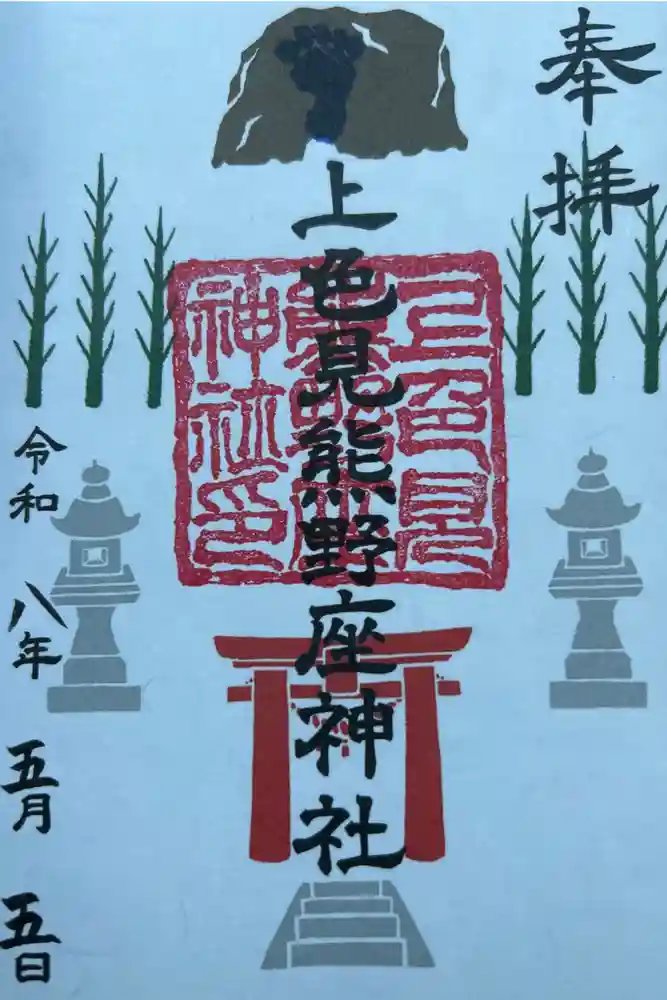 奉拝
上色見熊野座神社
上色見
熊野座
神社印
令和八年五月五日